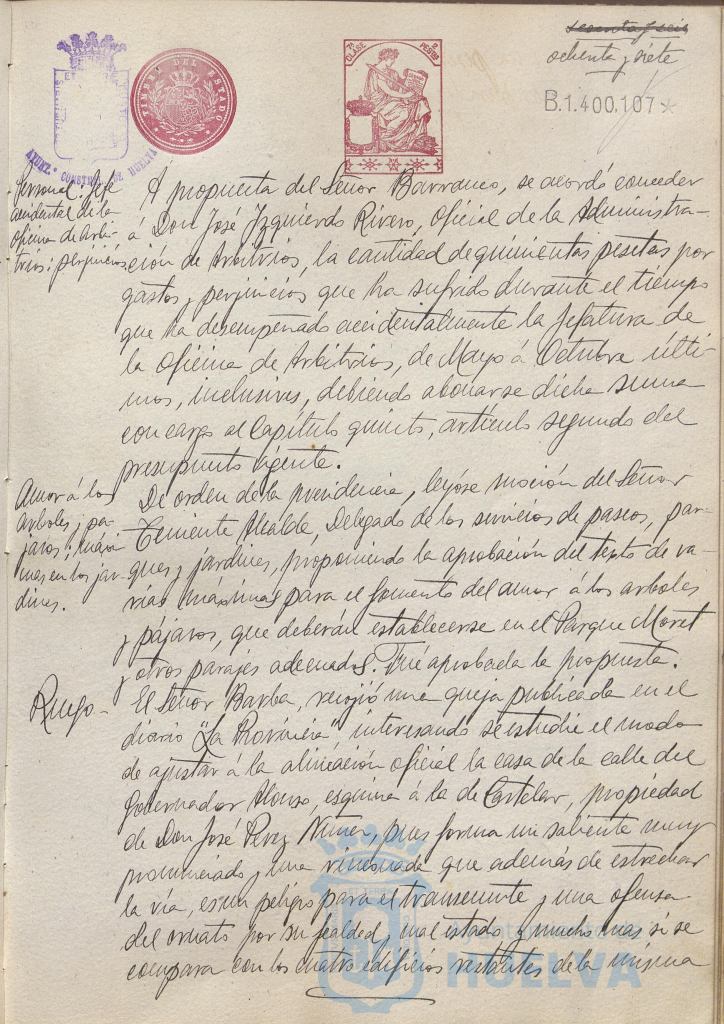 ochenta y siete
B.1.400.107
TIMBRE DEL ESTADO
7ª CLASE
PESETAS
AYUNTº CONSTITL DE HUELVA
Personal: Jefe
accidental de la
Oficina de Arbi-
trios: perjuicios
A propuesta del Señor Barranco, se acordó conceder
á Don José Izquierdo Rivero, Oficial de la Administra-
ción de Arbitrios, la cantidad de quinientas pesetas por
gastos y perjuicios que ha sufrido durante el tiempo
que ha desempeñado accidentalmente la jefatura de
la Oficina de Arbitrios, de Mayo á Octubre últi-
mos, inclusives, debiendo abonarse dicha suma
con cargo al Capítulo quinto, artículo segundo del
presupuesto vigente.
Amor á los
arboles y pa-
jaros; máxi-
mas en los jar-
dines.
De orden de la presidencia, leyóse moción del Señor
Teniente Alcalde, Delegado de los servicios de paseos, par-
ques y jardines, proponiendo la aprobación del texto de va-
rias máximas para el fomento del amor á los arboles
y pájaros, que deberán establecerse en el Parque Moret
y otros parajes adecuados. Fué aprobada la propuesta.
Ruego-
El Señor Barba, recojió una queja publicada en el
diario "La Provincia", interesando se estudie el modo
de ajustar á la alineación oficial la casa de la calle del
Gobernador Alonso, esquina á la de Castelar, propiedad
de Don José Perez Nuñez, pues forma un saliente muy
pronunciado y una rinconada que además de estrechar
la vía, es un peligro para el transeunte y una ofensa
del ornato por su fealdad, mal estado y mucho mas si se
compara con los cuatro edificios restantes de la misma
HUELVA